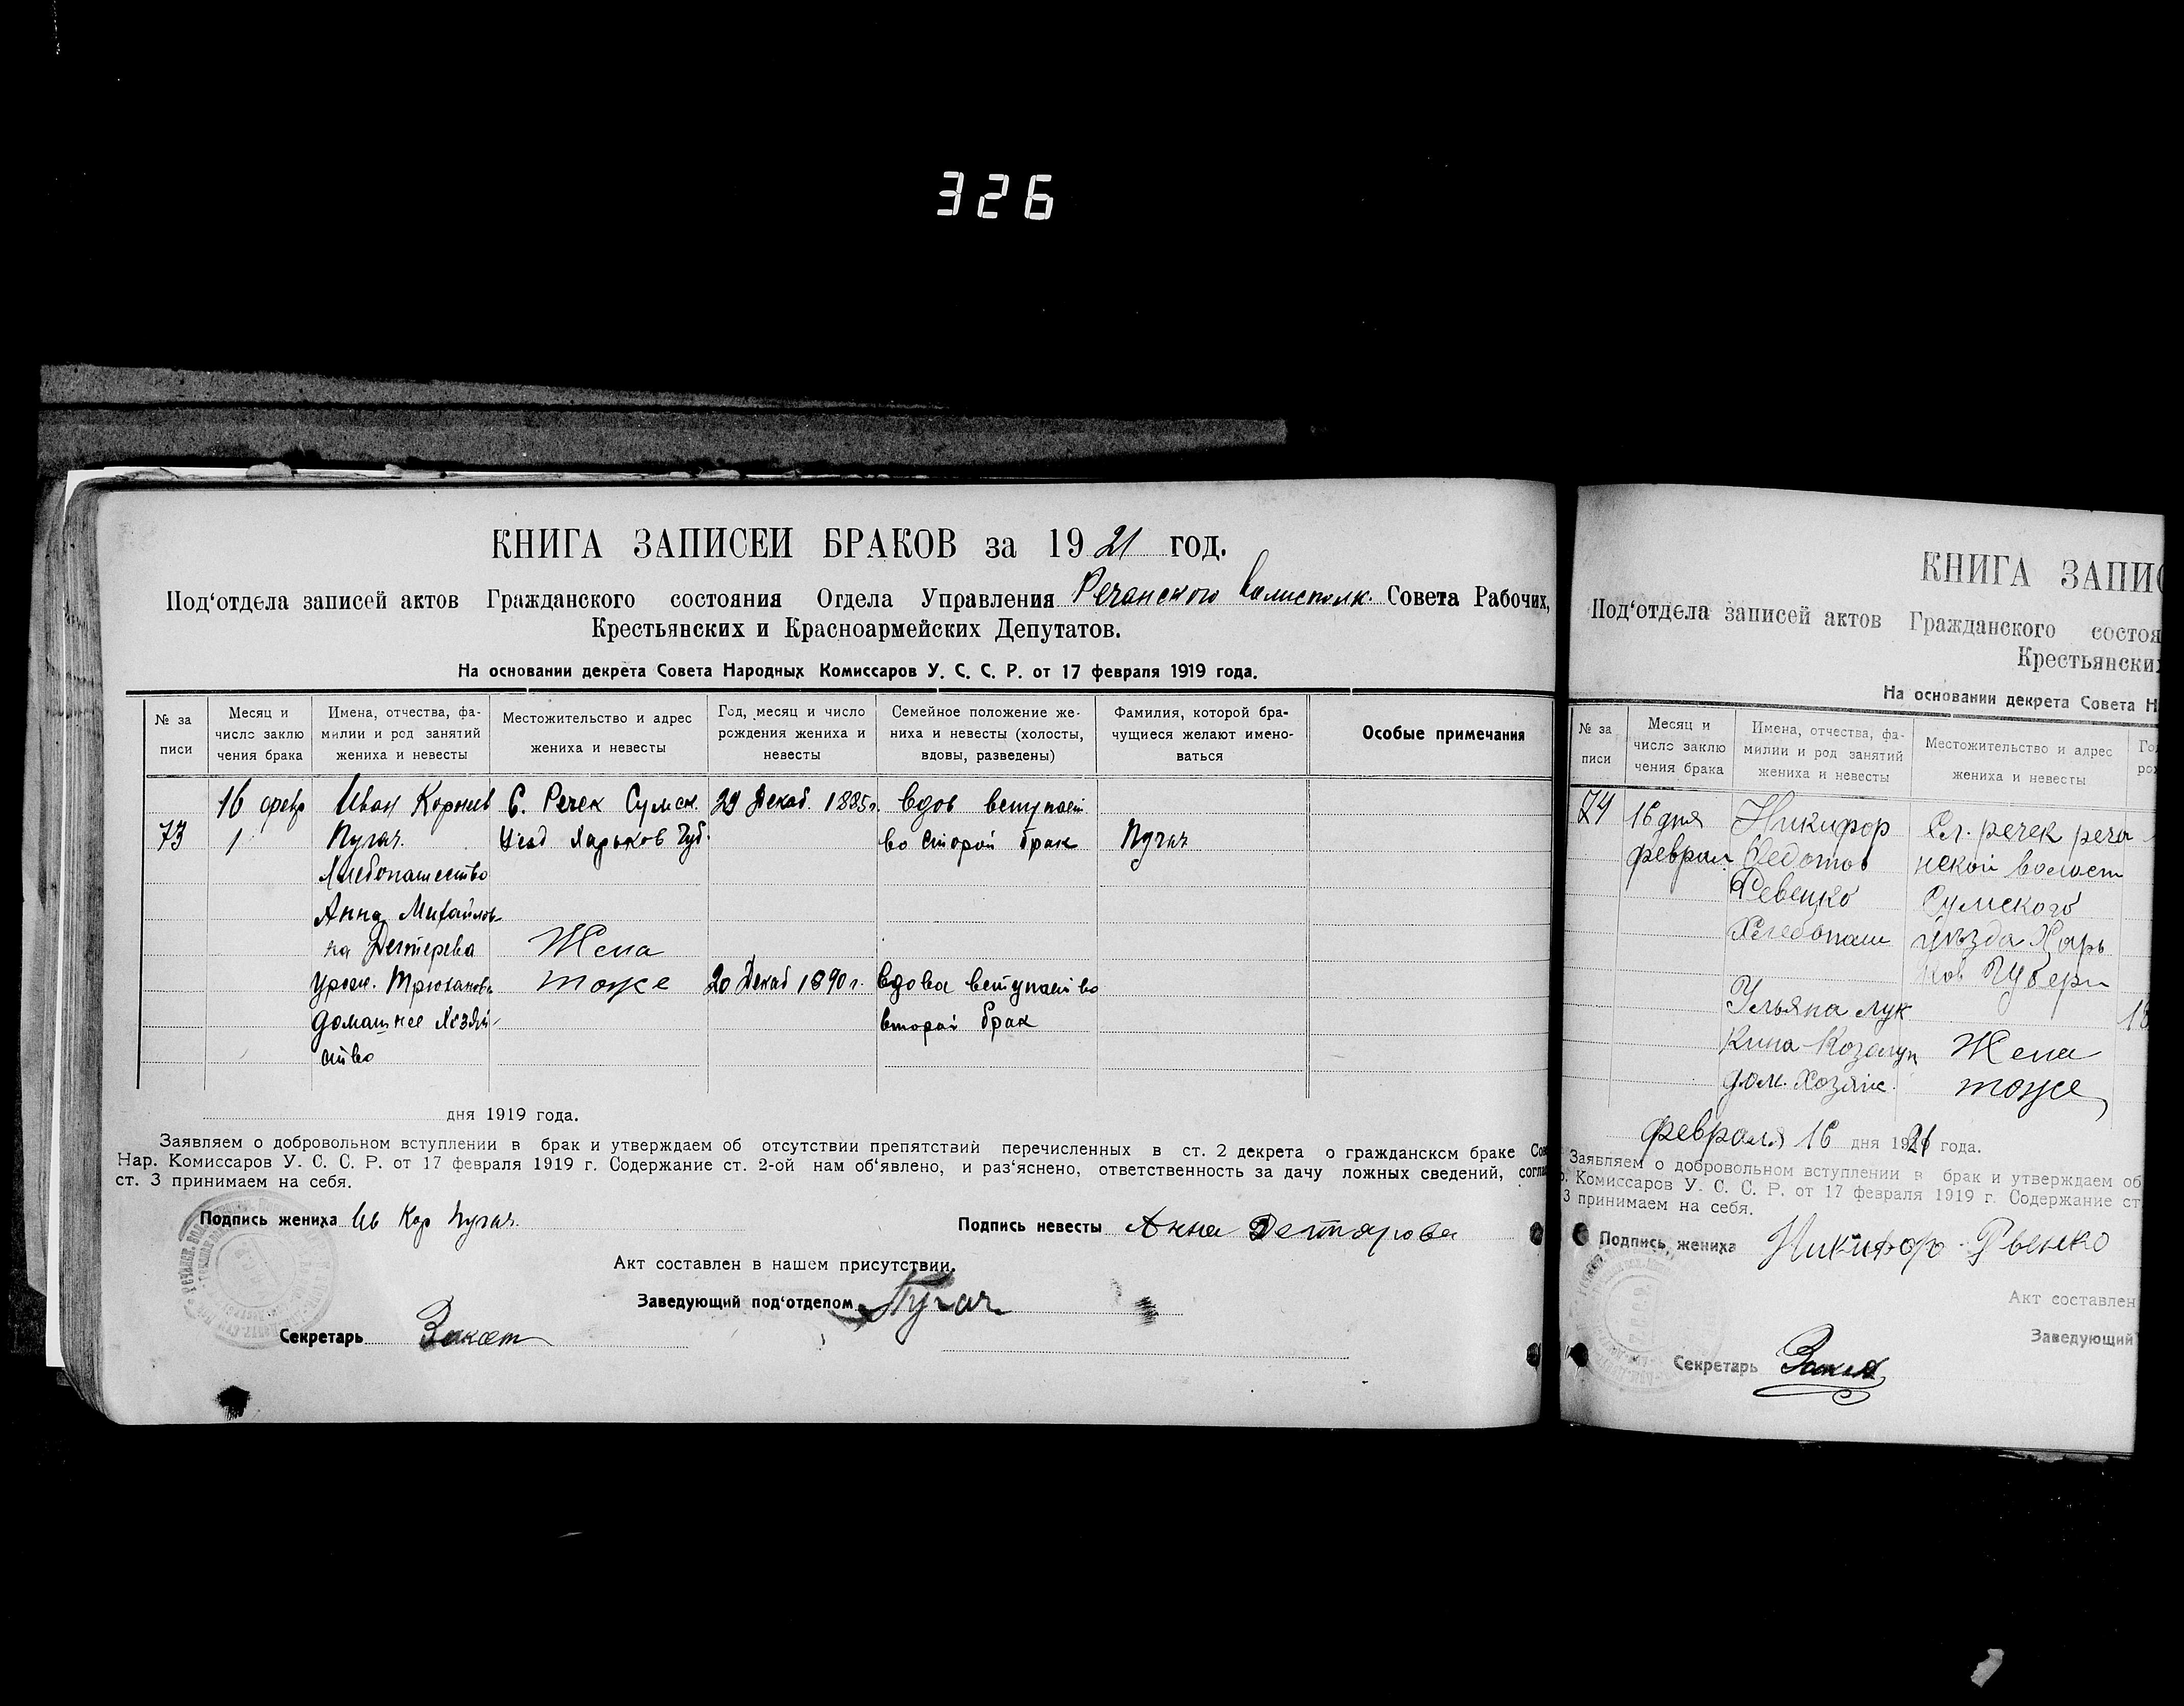 326
КНИГА ЗАПИСЕЙ БРАКОВ за 1921 год.
Под'отдела записей актов Гражданского состояния Отдела Управления Речанского Волисполк. Совета Рабочих,
Крестьянских и Красноармейских Депутатов.
На основании декрета Совета Народных Комиссаров У. С. С. Р. от 17 февраля 1919 года.
№ за писи
Месяц и число заклю чения брака
Имена, отчества, фа- милии и род занятий жениха и невесты
Местожительство и адрес жениха и невесты
Год, месяц и число рождения жениха и невесты
Семейное положение же- ниха и невесты (холосты, вдовы, разведены)
Фамилия, которой бра- чущиеся желают имено- ваться
Особые примечания
16 февр Иван Корнив С. Речек Сумск. 29 Декаб. 1885г. вдов вступает
73 Пугач. Уезд Харьков Губ. во второй брак Пугач
Хлебопашество
Анна Михайлов-
на Дегтерева Жена
урож. тоже 20 Декаб 1890г. вдова вступает во
домашнее Хозяй- второй брак
ство
дня 1919 года.
Заявляем о добровольном вступлении в брак и утверждаем об отсутствии препятствий перечисленных в ст. 2 декрета о гражданском браке Сов
Нар. Комиссаров У. С. С. Р. от 17 февраля 1919 г. Содержание ст. 2-ой нам об'явлено, и раз'яснено, ответственность за дачу ложных сведений, согла
ст. 3 принимаем на себя.
Подпись жениха Ив Кор Пугач.
Подпись невесты Анна Дегтярова
Акт составлен в нашем присутствии.
Заведующий под'отделом Пугач
Секретарь
КНИГА ЗАПИС
Под'отдела записей актов Гражданского состоя
Крестьянски
На основании декрета Совета Н
№ за писи
Месяц и число заклю чения брака
Имена, отчества, фа- милии и род занятий жениха и невесты
Местожительство и адрес жениха и невесты
Го
ро
74 16 дня Никифор Сл. речек реча
феврал. Федотов нской волост
Ревенко Сумского
Хлебопаш уъзда Харь
ков Губерн
Ульяна Лук 18
Кина Козалуп Жена
дом. Хозяйс. тоже
февраля 16 дня 1921 года.
Заявляем о добровольном вступлении в брак и утверждаем об
р. Комиссаров У. С. С. Р. от 17 февраля 1919 г. Содержание ст
3 принимаем на себя.
Подпись жениха Никифор Рвенко
Акт составлен
Заведующий
Секретарь